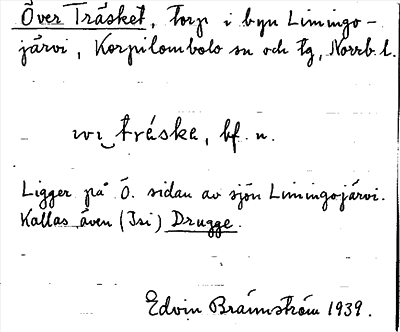 Över Träsket, torp i byn Limingo-
järvi, Korpilombolo sn och tg, Norrb. l.
träske, bf. n.
Ligger på Ö. sidan av sjön Limingojärvi.
Kallas även (Isi) Drugge.
Edvin Brännström 1939.